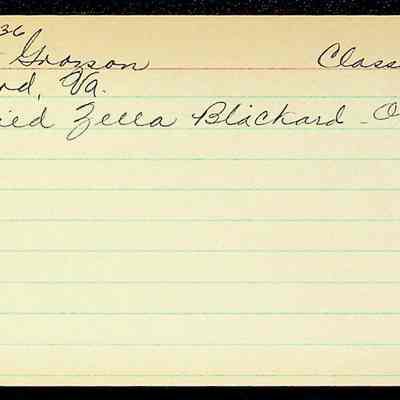 36
Grayson Class
rd, Va.
ied Zella Blackard - O